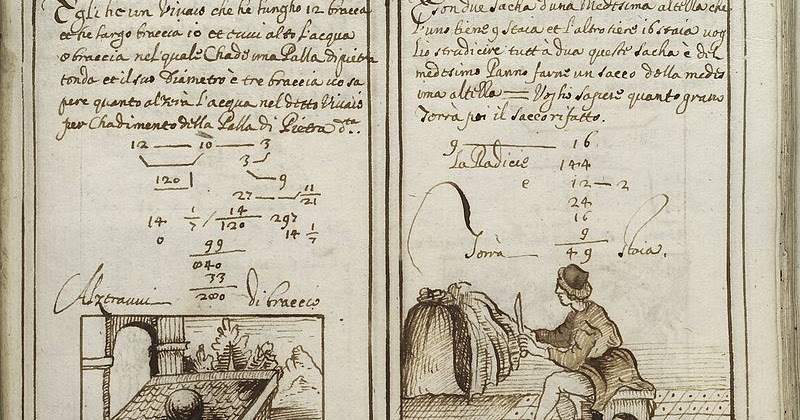 Egli he un Vivaio che he lungho 12 braccia
et he largo braccia 10 et evvi alto l'acqua
braccia nel quale Chade una Palla di pietra
tonda et il suo Diametro è tre braccia vo sa
pere quanto alzera l'acqua nel detto Vivaio
per Chadimento della Palla di Pietra d.ta
12 — 10 — 3
3
120 9
27 — 11/21
14 1/7 / 14/120 297
0 14 1/7
99
840
33
280
Alzeravvi di braccio
Son due Sacha d'una Medesima altella che
l'uno tiene 9 Staia et l'altro tiene 16 staia vog
lio sdradicire tutt'a dua queste sacha è del
medesimo Panno farne un sacco della medes
ima altella Voglio sapere quanto grano
Terrà poi il sacco rifatto.
9 — 16
La Radicie 144
e 12 — 2
24
16
9
Terrà 49 staia.